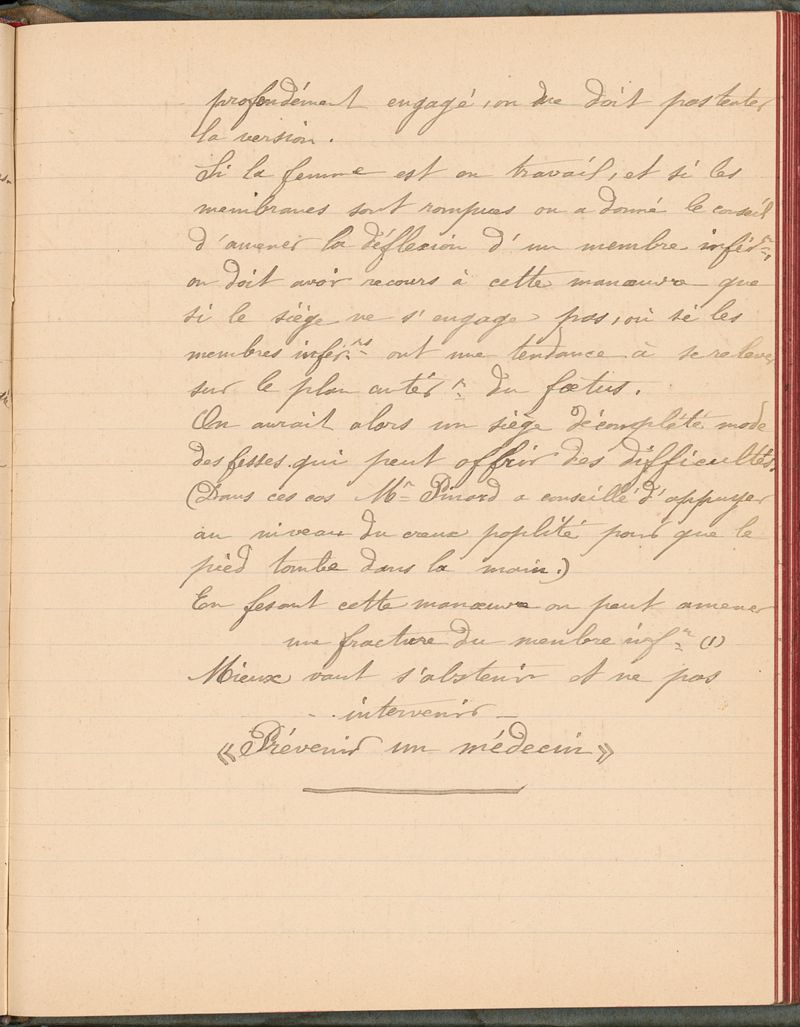 profondément engagé, on ne doit pas tenter
la version.
Si la femme est en travail, et si les
membranes sont rompues on a donné le conseil
d'amener la déflexion d'un membre infér.r,
on doit avoir recours à cette manœuvre que
si le siège ne s'engage pas, où si les
membres infér.rs ont une tendance à se relever
sur le plan antér.r du fœtus.
On aurait alors un siège décomplété mode
des fesses qui peut offrir des difficultés.
(Dans ces cas Mr Pinard a conseillé d'appuyer
au niveau du creux poplité pour que le
pied tombe dans la main.)
En fesant cette manœuvre on peut amener
une fracture du membre inf.r (1)
Mieux vaut s'abstenir et ne pas
intervenir –
« Prévenir un médecin »